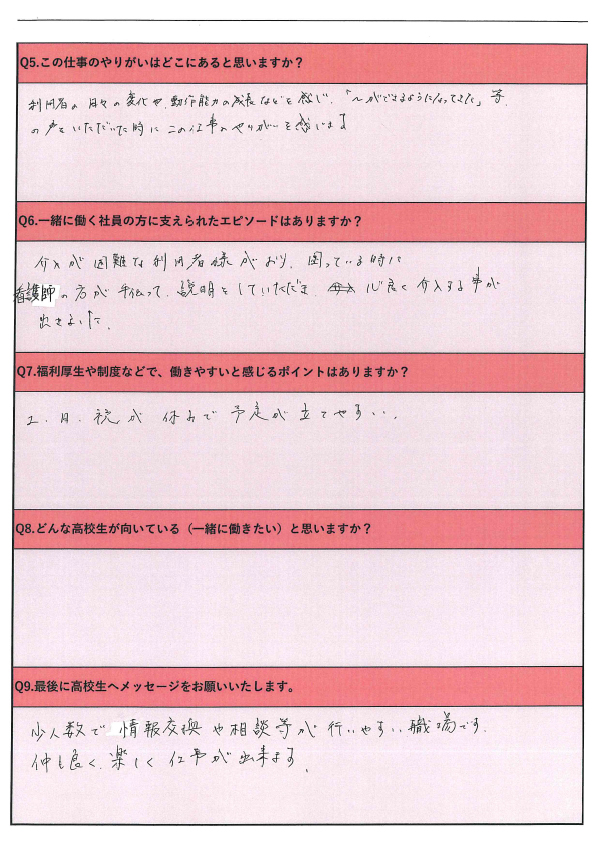 Q5.この仕事のやりがいはどこにあると思いますか？
利用者の日々の変化や、動作能力の成長などを感じ、「～ができるようになってきた」等、
の声をいただいた時にこの仕事のやりがいを感じます
Q6.一緒に働く社員の方に支えられたエピソードはありますか？
介入が困難な利用者様がおり、困っている時に
看護師の方が手伝って、説明をしていただき、心良く介入する事が
出来ました。
Q7.福利厚生や制度などで、働きやすいと感じるポイントはありますか？
土、日、祝が休みで予定が立てやすい。
Q8.どんな高校生が向いている（一緒に働きたい）と思いますか？
Q9.最後に高校生へメッセージをお願いいたします。
少人数で情報交換や相談等が行いやすい職場です。
仲も良く、楽しく仕事が出来ます。